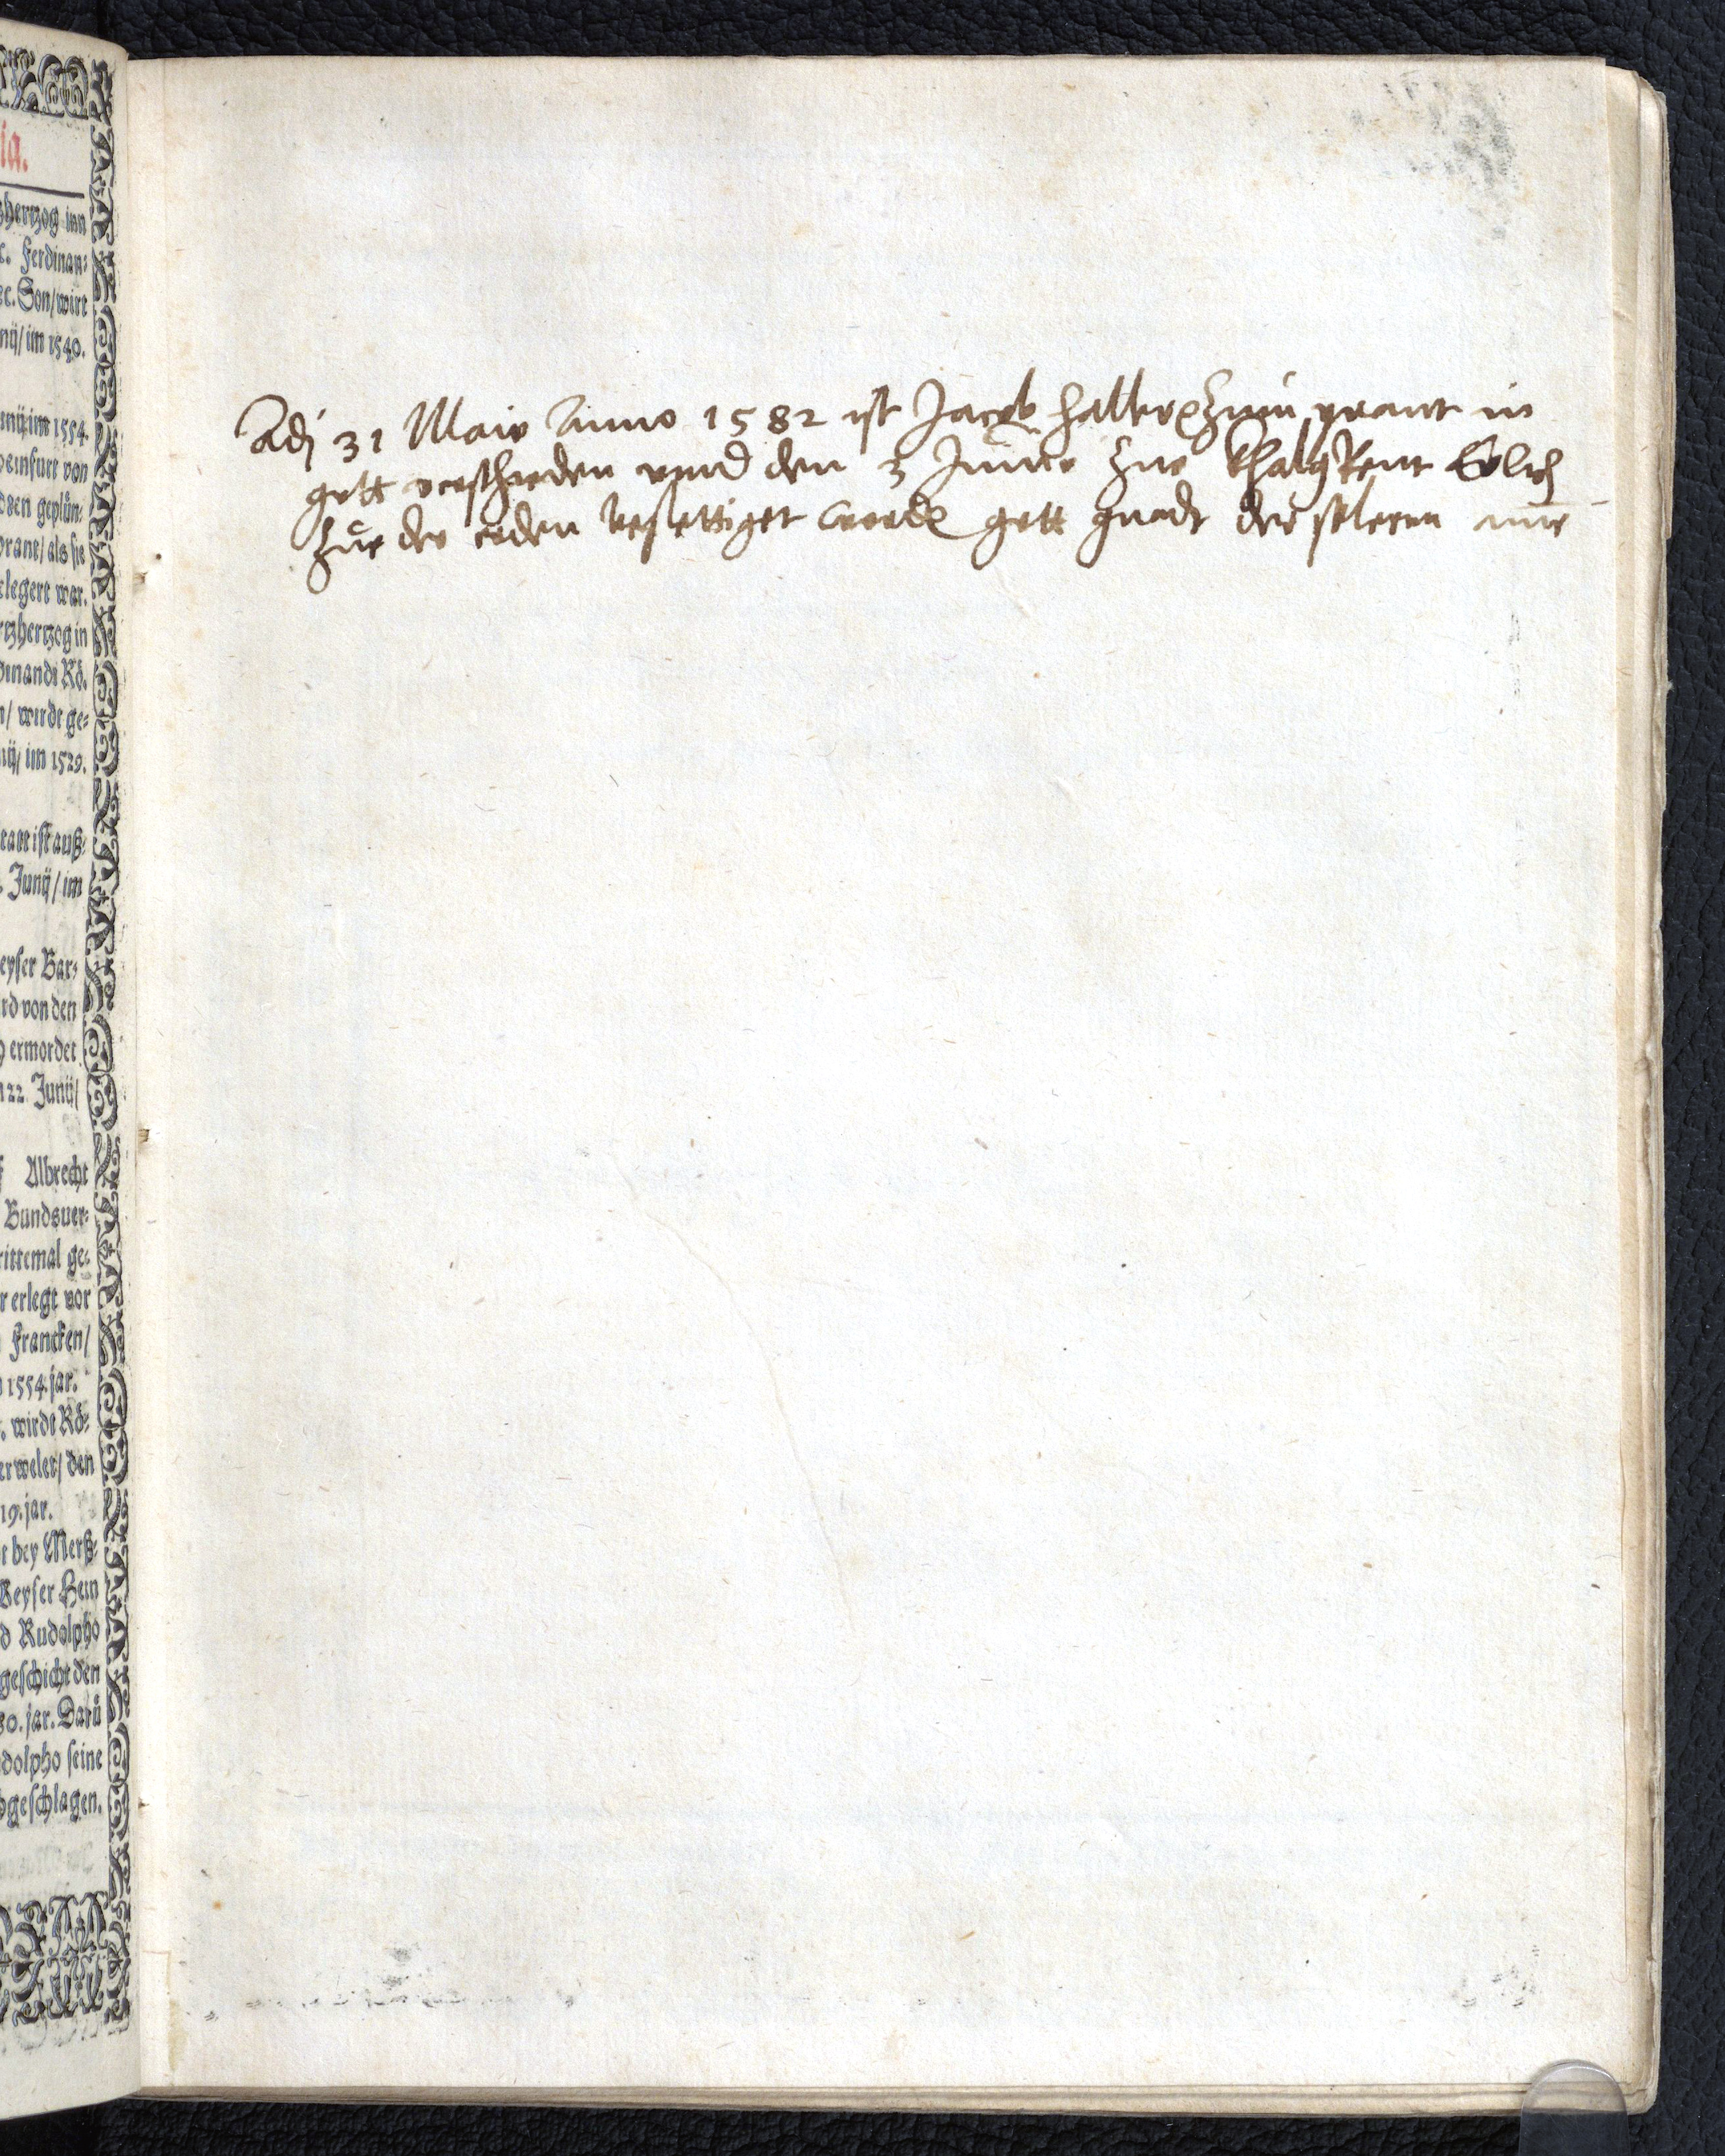 ia.
hertzog inn
c. Ferdinan⸗
ꝛc. Son/wirt
nij/im 1540.
enij im 1554.
einfurt von
geplün⸗
brant/als sie
elegert war.
rtzhertzog in
dinandi Rö.
n/wirdt ge⸗
nij/im 1529.
ist auß⸗
. Junij/im
eyser Bar⸗
rd von den
ermordet
22. Junij/
Albrecht
Bundsuer⸗
rittemal ge⸗
r erlegt vor
Francken/
1554. jar.
. wirdt Rö⸗
erwelet/den
19. jar.
t bey Merß⸗
Keyser Hein
d Rudolpho
geschicht den
80. jar. Darü
dolpho seine
bgeschlagen.
Adj 31 Maio Anno 1582 ist Jacob Haller zum in
gott verschieden vnnd den 3 Junio zue Erlich
zue der erden bestettiget worden gott gnadt der seleenn